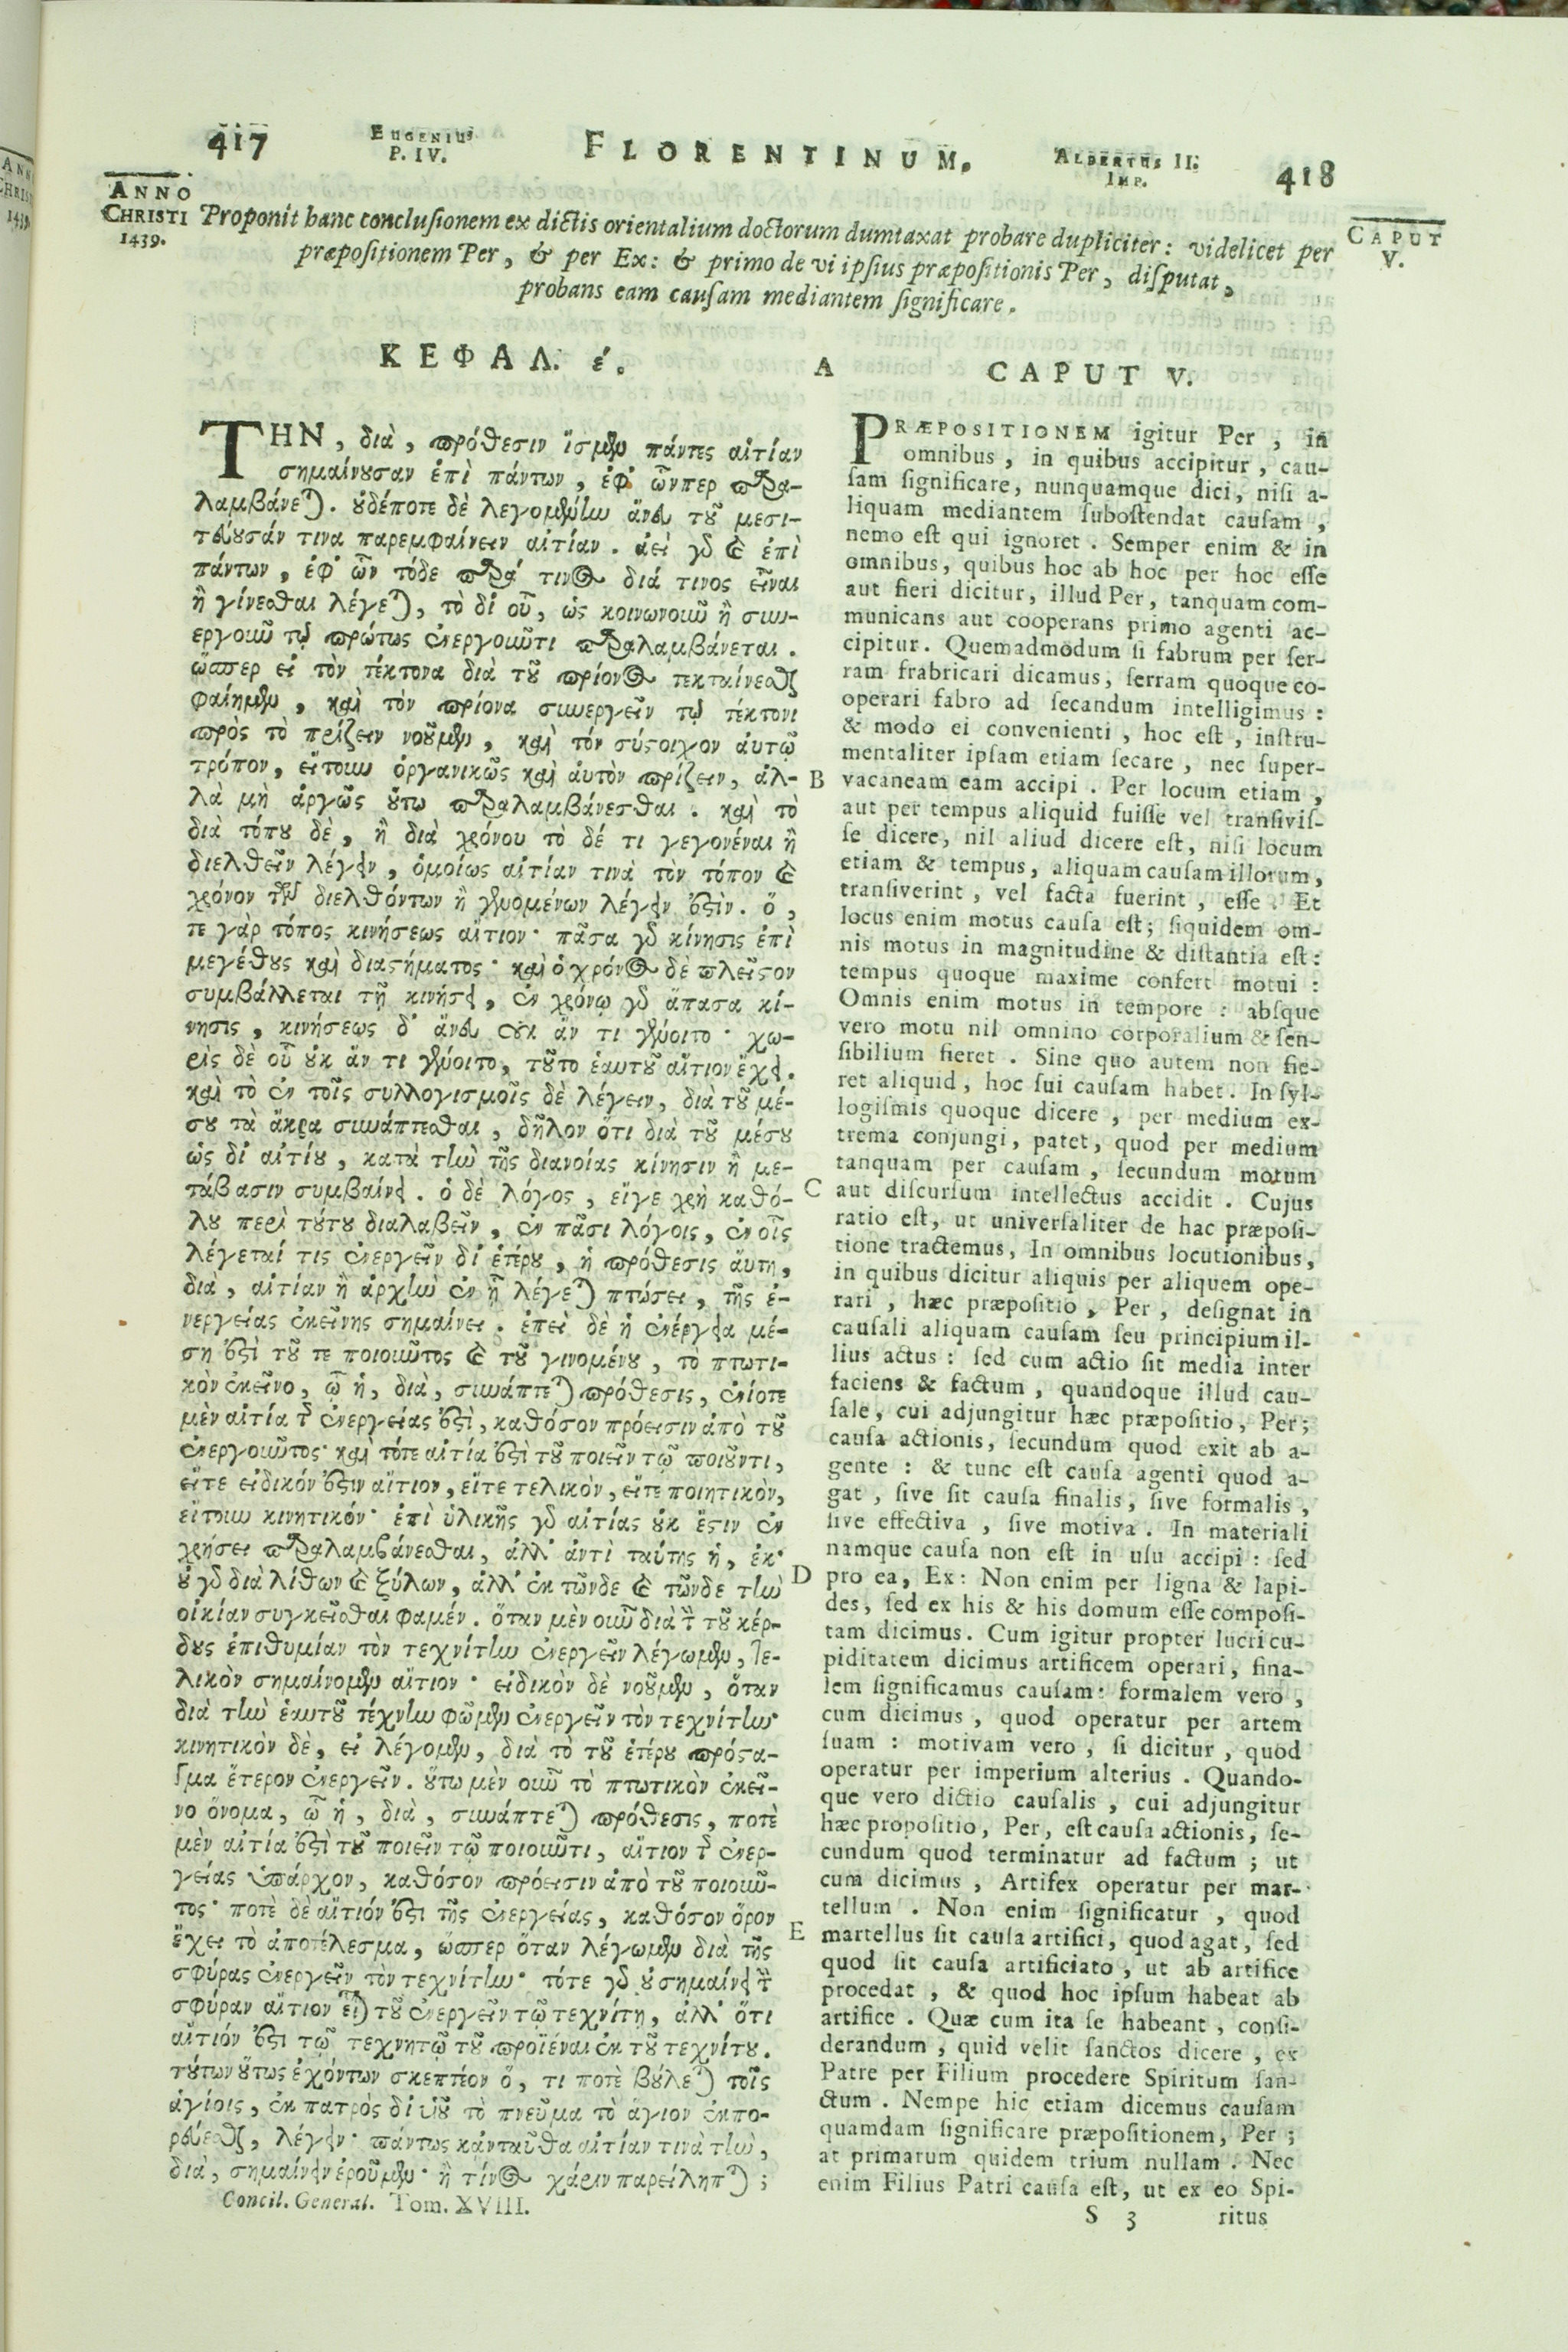 417
EUGENIUS
P. IV.
FLORENTINUM.
ALBERTUS II.
IMP.
418
ANNO
CHRISTI
1439.
CAPUT
V.
Proponit hanc conclusionem ex dictis orientalium doctorum dumtaxat probare dupliciter: videlicet per
præpositionem Per, & per Ex: & primo de vi ipsius præpositionis Per, disputat,
probans eam causam mediantem significare.
ΚΕΦΑΛ. έ.
ΤΗΝ, διὰ, πρόθεσιν ἴσμεν πάντες αἰτίαν
σημαίνουσαν ἐπὶ πάντων, ἐφ' ὧνπερ παρα-
λαμβάνεται. οὐδέποτε δὲ λεγομένην ἄνευ τοῦ μεσι-
τεύουσάν τινα παρεμφαίνειν αἰτίαν. ἀεὶ γὰρ καὶ ἐπὶ
πάντων, ἐφ' ὧν τόδε παρά τινος διά τινος εἶναι
ἢ γίνεσθαι λέγεται, τὸ δι' οὗ, ὡς κοινωνοῦν ἢ συν-
εργοῦν τῷ πρώτως ἐνεργοῦντι παραλαμβάνεται.
ὥσπερ εἰ τὸν τέκτονα διὰ τοῦ πρίονος τεκταίνεσθαι
φαίημεν, καὶ τὸν πρίονα συνεργεῖν τῷ τέκτονι
πρὸς τὸ πρίζειν νοοῦμεν, καὶ τόν σύστοιχον αὐτῷ
τρόπον, εἴτουν ὀργανικῶς καὶ αὐτὸν πρίζειν, ἀλ-
λὰ μὴ ἀργῶς οὕτω παραλαμβάνεσθαι. καὶ τὸ
διὰ τόπου δὲ, ἢ διὰ χρόνου τὸ δέ τι γεγονέναι ἢ
διελθεῖν λέγειν, ὁμοίως αἰτίαν τινὰ τὸν τόπον καὶ
χρόνον τῶν διελθόντων ἢ γενομένων λέγειν ἐστὶν. ὅ,
τε γὰρ τόπος κινήσεως αἴτιον· πᾶσα γὰρ κίνησις ἐπὶ
μεγέθους καὶ διαστήματος· καὶ ὁ χρόνος δὲ πλεῖστον
συμβάλλεται τῇ κινήσει, ἐν χρόνῳ γὰρ ἅπασα κί-
νησις, κινήσεως δ' ἄνευ οὐκ ἄν τι γένοιτο· χω-
ρὶς δὲ οὗ οὐκ ἄν τι γένοιτο, τοῦτο ἑαυτοῦ αἴτιον ἔχει.
καὶ τὸ ἐν τοῖς συλλογισμοῖς δὲ λέγειν, διὰ τοῦ μέ-
σου τὰ ἄκρα συνάπτεσθαι, δῆλον ὅτι διὰ τοῦ μέσου
ὡς δι' αἰτίου, κατὰ τὴν τῆς διανοίας κίνησιν ἢ με-
τάβασιν συμβαίνει. ὁ δὲ λόγος, εἴγε χρὴ καθό-
λου περὶ τούτου διαλαβεῖν, ἐν πᾶσι λόγοις, ἐν οἷς
λέγεταί τις ἐνεργεῖν δι' ἑτέρου, ἡ πρόθεσις αὕτη,
διὰ, αἰτίαν ἢ ἀρχὴν ἐν ᾗ λέγεται πτώσει, τῆς ἐ-
νεργείας ἐκείνης σημαίνει. ἐπεὶ δὲ ἡ ἐνέργεια μέ-
ση ἐστὶ τοῦ τε ποιοῦντος καὶ τοῦ γινομένου, τὸ πτωτι-
κὸν ἐκεῖνο, ᾧ ἡ, διὰ, συνάπτεται πρόθεσις, ἐνίοτε
μὲν αἰτία τῆς ἐνεργείας ἐστὶ, καθόσον πρόεισιν ἀπὸ τοῦ
ἐνεργοῦντος· καὶ τότε αἰτία ἐστὶ τοῦ ποιεῖν τῷ ποιοῦντι,
εἴτε εἰδικόν ἐστιν αἴτιον, εἴτε τελικὸν, εἴτε ποιητικὸν,
εἴτουν κινητικόν· ἐπὶ ὑλικῆς γὰρ αἰτίας οὐκ ἔστιν ἐν
χρήσει παραλαμβάνεσθαι, ἀλλ' ἀντὶ ταύτης ἡ, ἐκ·
οὐ γὰρ διὰ λίθων καὶ ξύλων, ἀλλ' ἐκ τῶνδε καὶ τῶνδε τὴν
οἰκίαν συγκεῖσθαι φαμέν. ὅταν μὲν οὖν διὰ τὴν τοῦ κέρ-
δους ἐπιθυμίαν τὸν τεχνίτην ἐνεργεῖν λέγωμεν, τε-
λικὸν σημαίνομεν αἴτιον· εἰδικὸν δὲ νοοῦμεν, ὅταν
διὰ τὴν ἑαυτοῦ τέχνην φῶμεν ἐνεργεῖν τὸν τεχνίτην·
κινητικὸν δὲ, εἰ λέγομεν, διὰ τὸ τοῦ ἑτέρου πρόστα-
γμα ἕτερον ἐνεργεῖν. οὕτω μὲν οὖν τὸ πτωτικὸν ἐκεῖ-
νο ὄνομα, ᾧ ἡ, διὰ, συνάπτεται πρόθεσις, ποτὲ
μὲν αἰτία ἐστὶ τοῦ ποιεῖν τῷ ποιοῦντι, αἴτιον τῆς ἐνερ-
γείας ὑπάρχον, καθόσον πρόεισιν ἀπὸ τοῦ ποιοῦν-
τος· ποτὲ δὲ αἴτιόν ἐστι τῆς ἐνεργείας, καθόσον ὅρον
ἔχει τὸ ἀποτέλεσμα, ὥσπερ ὅταν λέγωμεν διὰ τῆς
σφύρας ἐνεργεῖν τὸν τεχνίτην· τότε γὰρ οὐ σημαίνει τὴν
σφύραν αἴτιον εἶναι τοῦ ἐνεργεῖν τῷ τεχνίτῃ, ἀλλ' ὅτι
αἴτιόν ἐστι τῷ τεχνητῷ τοῦ προϊέναι ἐκ τοῦ τεχνίτου.
τούτων οὕτως ἐχόντων σκεπτέον ὅ, τι ποτὲ βούλεται τοῖς
ἁγίοις, ἐκ πατρὸς δι' υἱοῦ τὸ πνεῦμα τὸ ἅγιον ἐκπο-
ρεύεσθαι, λέγειν· πάντως κἀνταῦθα αἰτίαν τινὰ τὴν,
διὰ, σημαίνειν ἐροῦμεν· ἢ τίνος χάριν παρείληπται;
Concil. General. Tom. XVIII.
A
B
C
D
E
CAPUT V.
PRÆPOSITIONEM igitur Per, in
omnibus, in quibus accipitur, cau-
sam significare, nunquamque dici, nisi a-
liquam mediantem subostendat causam,
nemo est qui ignoret. Semper enim & in
omnibus, quibus hoc ab hoc per hoc esse
aut fieri dicitur, illud Per, tanquam com-
municans aut cooperans primo agenti ac-
cipitur. Quemadmodum si fabrum per ser-
ram frabricari dicamus, serram quoque co-
operari fabro ad secandum intelligimus:
& modo ei convenienti, hoc est, instru-
mentaliter ipsam etiam secare, nec super-
vacaneam eam accipi. Per locum etiam,
aut per tempus aliquid fuisse vel transivis-
se dicere, nil aliud dicere est, nisi locum
etiam & tempus, aliquam causam illorum,
transiverint, vel facta fuerint, esse. Et
locus enim motus causa est; siquidem om-
nis motus in magnitudine & distantia est:
tempus quoque maxime confert motui:
Omnis enim motus in tempore: absque
vero motu nil omnino corporalium & sen-
sibilium fieret. Sine quo autem non fie-
ret aliquid, hoc sui causam habet. In syl-
logismis quoque dicere, per medium ex-
trema conjungi, patet, quod per medium
tanquam per causam, secundum motum
aut discursum intellectus accidit. Cujus
ratio est, ut universaliter de hac præposi-
tione tractemus, In omnibus locutionibus,
in quibus dicitur aliquis per aliquem ope-
rari, hæc præpositio, Per, designat in
causali aliquam causam seu principium il-
lius actus: sed cum actio sit media inter
faciens & factum, quandoque illud cau-
sale, cui adjungitur hæc præpositio, Per;
causa actionis, secundum quod exit ab a-
gente: & tunc est causa agenti quod a-
gat, sive sit causa finalis, sive formalis,
sive effectiva, sive motiva. In materiali
namque causa non est in usu accipi: sed
pro ea, Ex: Non enim per ligna & lapi-
des, sed ex his & his domum esse composi-
tam dicimus. Cum igitur propter lucri cu-
piditatem dicimus artificem operari, fina-
lem significamus causam: formalem vero,
cum dicimus, quod operatur per artem
suam: motivam vero, si dicitur, quod
operatur per imperium alterius. Quando-
que vero dictio causalis, cui adjungitur
hæc propositio, Per, est causa actionis, se-
cundum quod terminatur ad factum; ut
cum dicimus, Artifex operatur per mar-
tellum. Non enim significatur, quod
martellus sit causa artifici, quod agat, sed
quod sit causa artificiato, ut ab artifice
procedat, & quod hoc ipsum habeat ab
artifice. Quæ cum ita se habeant, consi-
derandum, quid velit sanctos dicere, ex
Patre per Filium procedere Spiritum san-
ctum. Nempe hic etiam dicemus causam
quamdam significare præpositionem, Per;
at primarum quidem trium nullam. Nec
enim Filius Patri causa est, ut ex eo Spi-
S 3
ritus